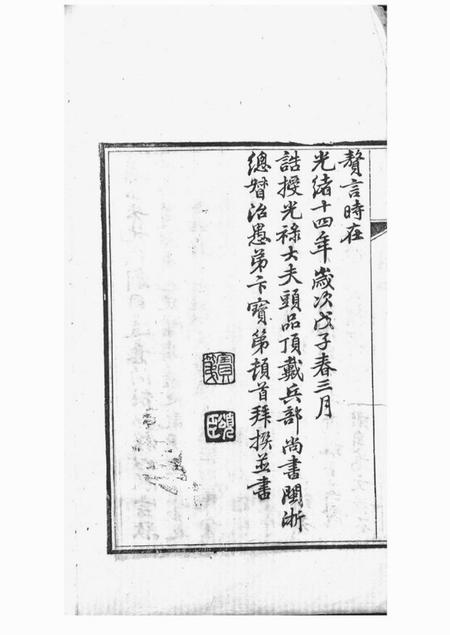 贅言時在
光緒十四年歲次戊子春三月
誥授光祿大夫頭品頂戴兵部尚書閩浙
總督治愚弟卞寶第頓首拜撰並書